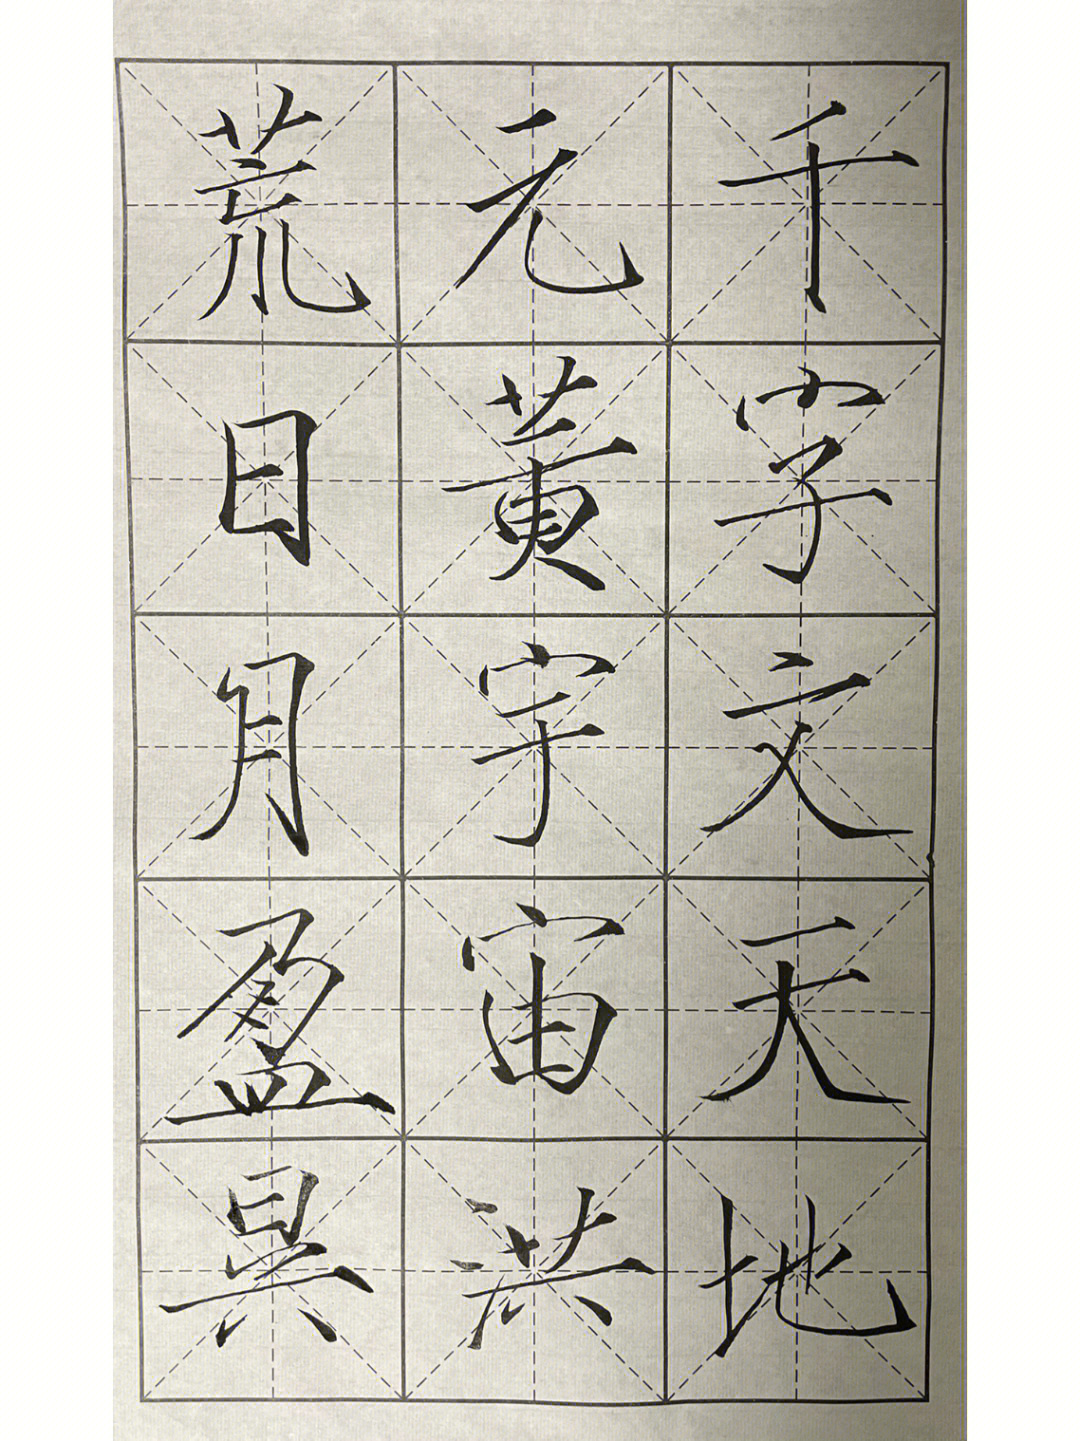 千字文天地
元黄宇宙洪
荒日月盈昃